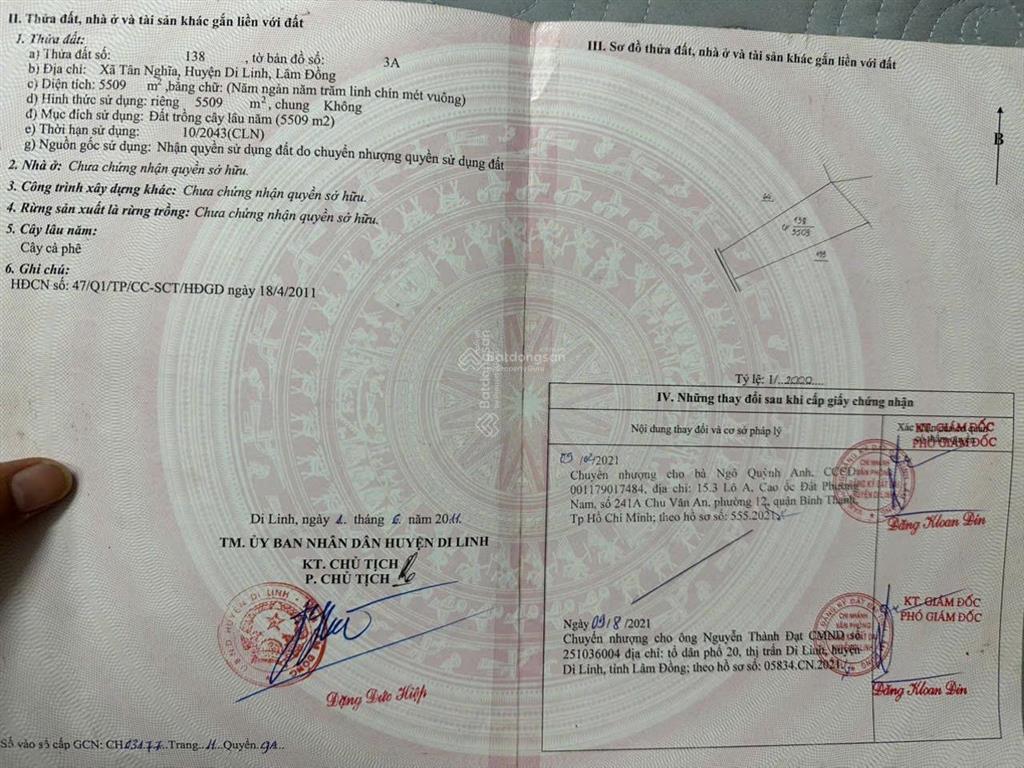 II. Thửa đất, nhà ở và tài sản khác gắn liền với đất
1. Thửa đất:
a) Thửa đất số: 138 , tờ bản đồ số: 3A
b) Địa chỉ: Xã Tân Nghĩa, Huyện Di Linh, Lâm Đồng
c) Diện tích: 5509 m² ,bằng chữ: (Năm ngàn năm trăm linh chín mét vuông)
d) Hình thức sử dụng: riêng 5509 m², chung Không
đ) Mục đích sử dụng: Đất trồng cây lâu năm (5509 m2)
e) Thời hạn sử dụng: 10/2043(CLN)
g) Nguồn gốc sử dụng: Nhận quyền sử dụng đất do chuyển nhượng quyền sử dụng đất
2. Nhà ở: Chưa chứng nhận quyền sở hữu.
3. Công trình xây dựng khác: Chưa chứng nhận quyền sở hữu.
4. Rừng sản xuất là rừng trồng: Chưa chứng nhận quyền sở hữu.
5. Cây lâu năm:
Cây cà phê
6. Ghi chú:
HĐCN số: 47/Q1/TP/CC-SCT/HĐGD ngày 18/4/2011
Di Linh, ngày 1. tháng 6 năm 2011
TM. ỦY BAN NHÂN DÂN HUYỆN DI LINH
KT. CHỦ TỊCH
P. CHỦ TỊCH
Đặng Đức Hiệp
Số vào sổ cấp GCN: CH03177..Trang..11..Quyển..9A..
III. Sơ đồ thửa đất, nhà ở và tài sản khác gắn liền với đất
B
138
5509
Tỷ lệ: 1/..2000....
IV. Những thay đổi sau khi cấp giấy chứng nhận
Nội dung thay đổi và cơ sở pháp lý
KT. GIÁM ĐỐC
PHÓ GIÁM ĐỐC
Chuyển nhượng cho bà Ngô Quỳnh Anh, CCCD
001179017484, địa chỉ: 15.3 Lô A, Cao ốc Đất Phương
Nam, số 241A Chu Văn An, phường 12, quận Bình Thạnh,
Tp Hồ Chí Minh; theo hồ sơ số: 555.2021
Đặng Kloan Đin
Ngày 09/8/2021
KT. GIÁM ĐỐC
PHÓ GIÁM ĐỐC
Chuyển nhượng cho ông Nguyễn Thành Đạt CMND số:
251036004 địa chỉ: tổ dân phố 20, thị trấn Di Linh, huyện
Di Linh, tỉnh Lâm Đồng; theo hồ sơ số: 05834.CN.2021
Đặng Kloan Đin
Batdongsan
by PropertyGuru